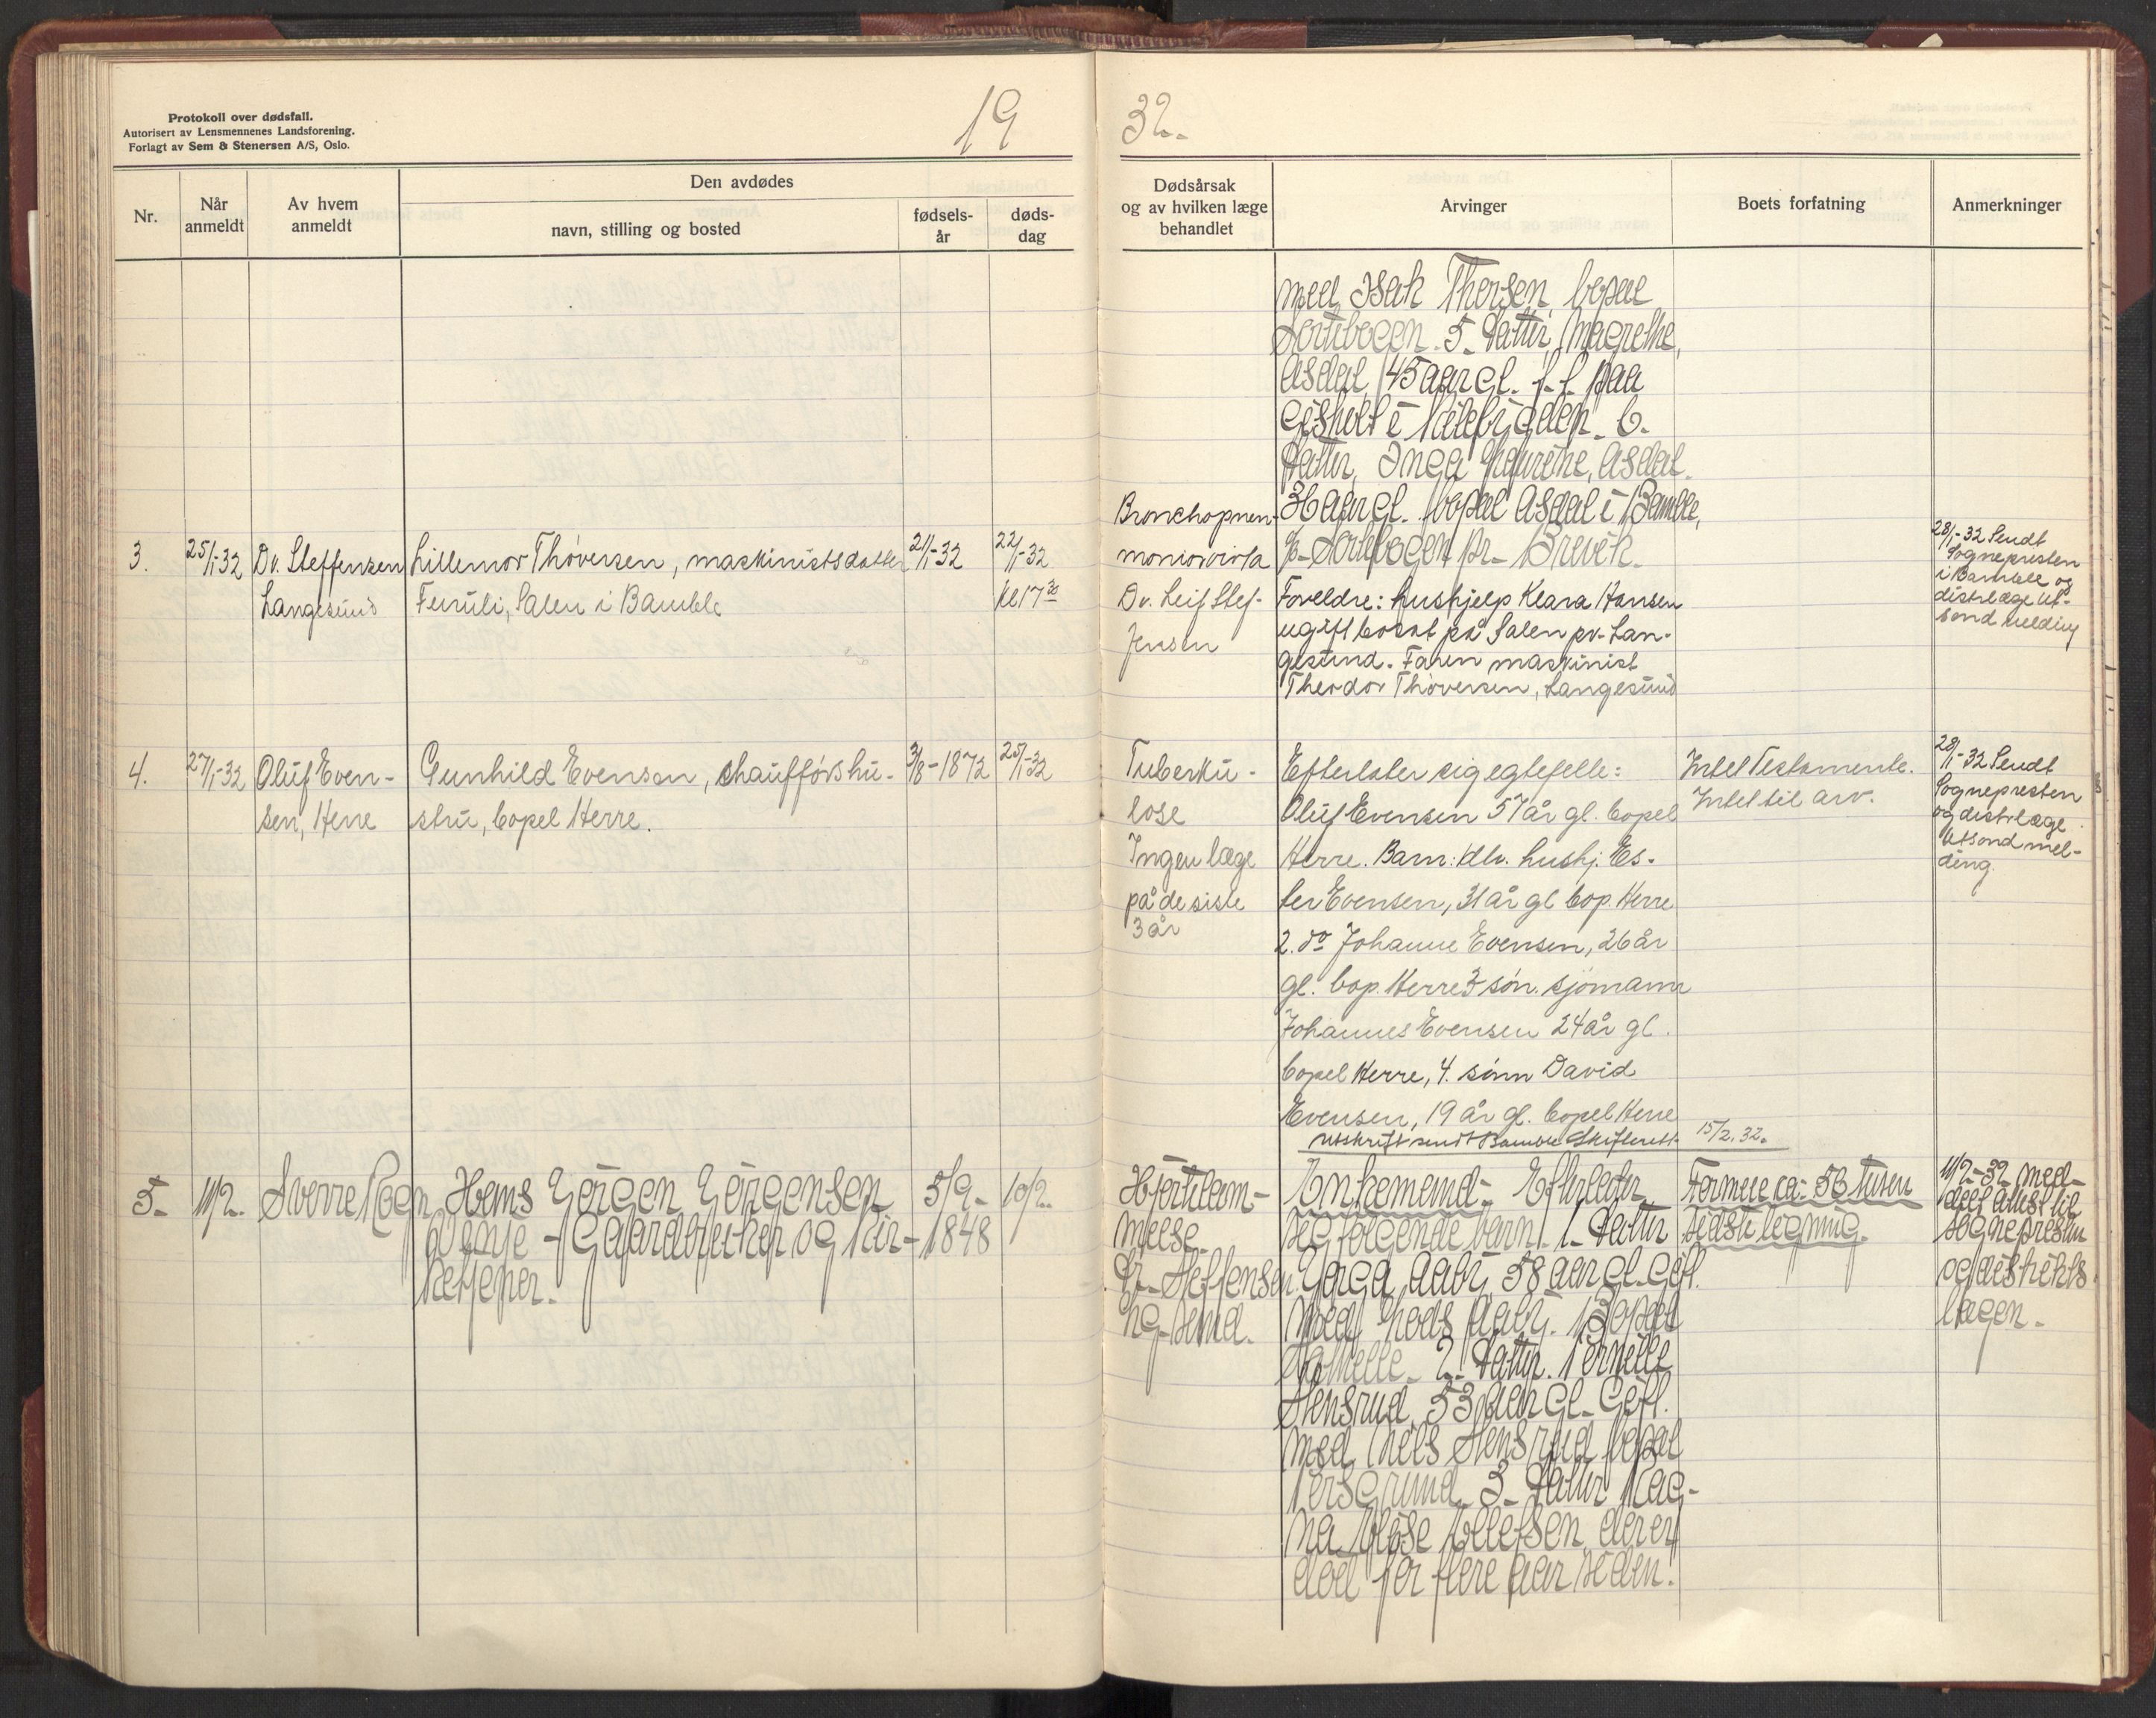 Protokoll over dødsfall.
Autorisert av Lensmennenes Landsforening.
Forlagt av Sem & Stenersen A/S, Oslo.
19
32.
Nr.
Når
anmeldt
Av hvem
anmeldt
Den avdødes
navn, stilling og bosted
fødsels-
år
døds-
dag
Dødsårsak
og av hvilken læge
behandlet
Arvinger
Boets forfatning
Anmerkninger
med Isak Thorsen, bopæl
5. datter, Magrethe,
Asdal, 45 aar gl.
i
datter, Inga Asdal.
36 aar gl. bopæl Asdal i Bamble,
pr. Brevik.
3.
25/1-32
Dr. Steffensen
Langesund
Lillemor Thoversen, maskinistsdatter
Furuli, Salen i Bamble
21/1-32
22/1-32
kl 17 30
Bronchopneu-
Dr. Leif Stef-
fensen
Foreldre: hushjelp Klara Hansen
ugift bosat på Salen pr. Lan-
gesund. Faren maskinist
Theodor Thoversen, Langesund
28/1-32 Sendt
Sognepresten
i Bamble og
distrlæge Ut-
sond melding
4.
27/1-32
Oluf Even-
sen, Herre
Gunhild Evensen, chaufførshu-
stru, bopel Herre.
3/8-1872
25/1-32
Tuberku-
lose
Ingen læge
på de siste
3 år
Efterlater sig egtefelle:
Oluf Evensen 57 år gl. bopel
Herre. Barn: 1 dtr. hushj. Es-
ter Evensen, 31 år gl bop. Herre
2. do Johanne Evensen, 26 år
gl. bop. Herre 3 søn. sjømann
Johannes Evensen 24 år gl.
bopel Herre, 4. sønn David
Evensen, 19 år gl. bopel Herre
Intet Testamente.
Intet til arv.
28/1-32 Sendt
Sognepresten
og distrlæge
Utsond mel-
ding.
Utskrift sendt Bamble Skifterett 15/2.32.
5.
11/2.
Sverre
Hans Jørgen Jørgensen
- Gaardbruker og Kir-
ketjener.
5/9-
1848
10/2.
Hjertelam-
melse.
Dr. Steffensen
Lg.sund.
Enkemand. Efterlater
seg følgende barn. 1. datter
Aaby, 58 aar gl. Gift
med Aaby. Bopæl
2. datter. Pernille
Stensrud, 53 aar gl. Gift
med Nils Stensrud, bopæl
Porsgrund. 3. datter Rag-
na Ellefsen, der er
død for flere aar siden.
Formue ca. 56 tusen
sidste ligning.
11/2-32 med-
delt til
sognepresten
og distrikts
lægen.